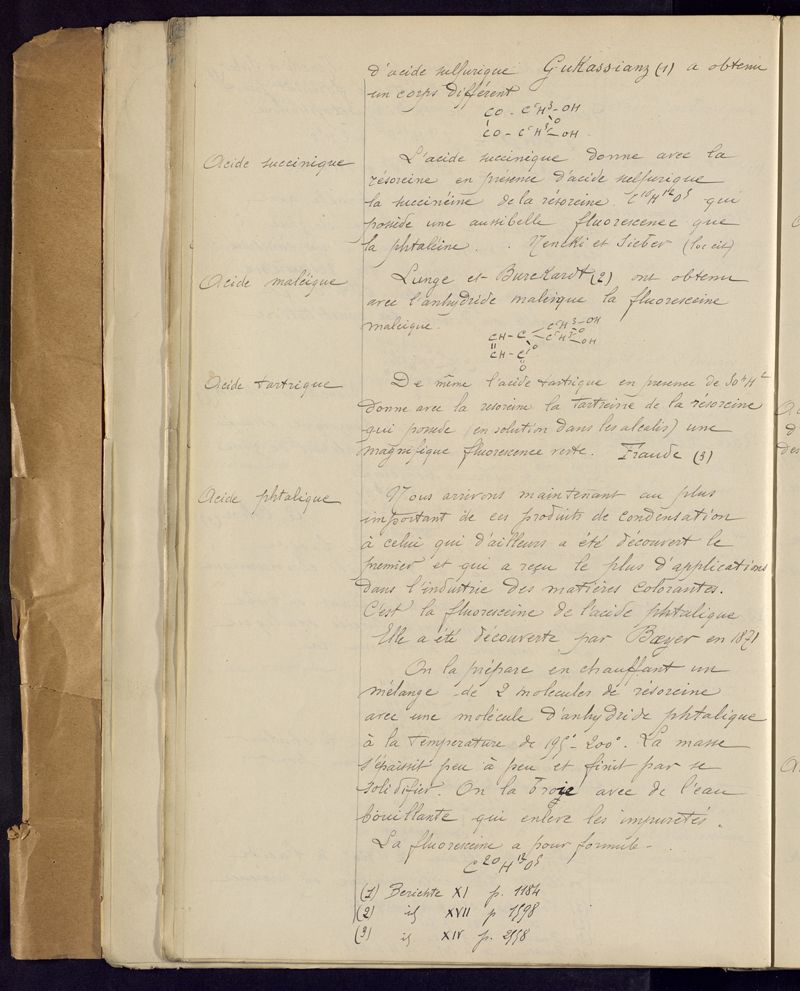 d'acide sulfurique Gukassianz (1) a obtenu
un corps différent
CO - C⁶H³ - OH
O
CO - C⁶H³ - OH
Acide succinique
L'acide succinique donne avec la
résorcine en présence d'acide sulfurique
la succinéine de la résorcine. C¹⁶H¹²O⁵ qui
possède une aussi belle fluorescence que
la phtaléine. . Nencki et Sieber (loc cit)
Acide maléique
Lunge et Burckardt (2) ont obtenu
avec l'anhydride maléique la fluorescéine
maléique.
C⁶H³ - OH
CH - C O
CH - C O C⁶H³ - OH
O
Acide tartrique
De même l'acide tartrique en presence de SO⁴H²
donne avec la resorcine la Tartréine de la résorcine
qui possède (en solution dans les alcalis) une
magnifique fluorescence verte. Fraude (3)
Acide phtalique
Nous arrivons maintenant au plus
important de ces produits de condensation
à celui qui d'ailleurs a été découvert le
premier et qui a reçu le plus d'applications
dans l'industrie des matières colorantes.
C'est la fluoresceine de l'acide phtalique
Elle a été découverte par Baeyer en 1871
On la prépare en chauffant un
mélange de 2 molecules de résorcine
avec une molécule d'anhydride phtalique
à la Temperature de 195° - 200°. La masse
s'épaissit peu à peu et finit par se
solidifier. On la avec de l'eau
bouillante qui enlève les impuretés.
La fluoresceine a pour formule -
C²⁰H¹²O⁵
(1) Berichte XI p. 1184
(2) id XVII p 1598
(3) id XIV p. 2558